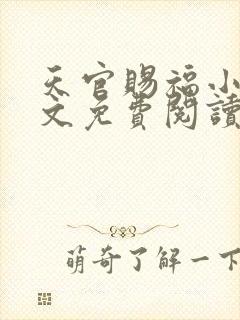 天官賜福小
文免費閱讀
萌奇了解一下